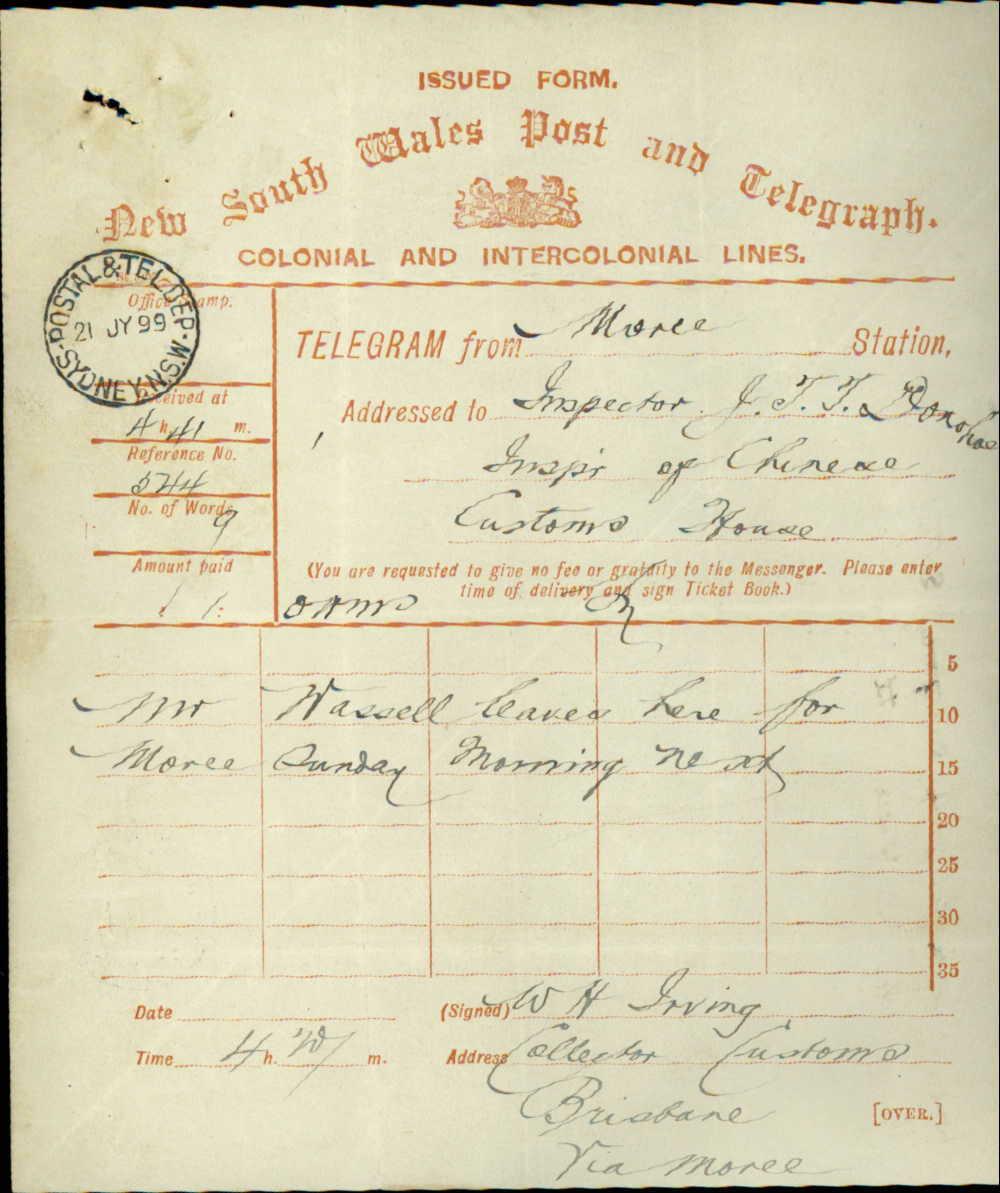 ISSUED FORM.
New South Wales Post and Telegraph.
COLONIAL AND INTERCOLONIAL LINES.
POSTAL & TEL. DEP.
21 JY 99
SYDNEY. N.S.W.
Office Stamp.
TELEGRAM from Moree Station,
Received at
4 h. 41 m.
Addressed to Inspector J. T. T. Donohoe
Reference No.
544
Inspr of Chinese
No. of Words
9
Customs House
Amount paid
1 1:
(You are requested to give no fee or gratuity to the Messenger. Please enter
time of delivery and sign Ticket Book.)
OHMS
5
Mr Wassell leaves here for 10
Moree Sunday Morning next 15
20
25
30
35
Date
(Signed) W H Irving
Time 4 h. m.
Address Collector Customs
Brisbane
[OVER.]
Via Moree